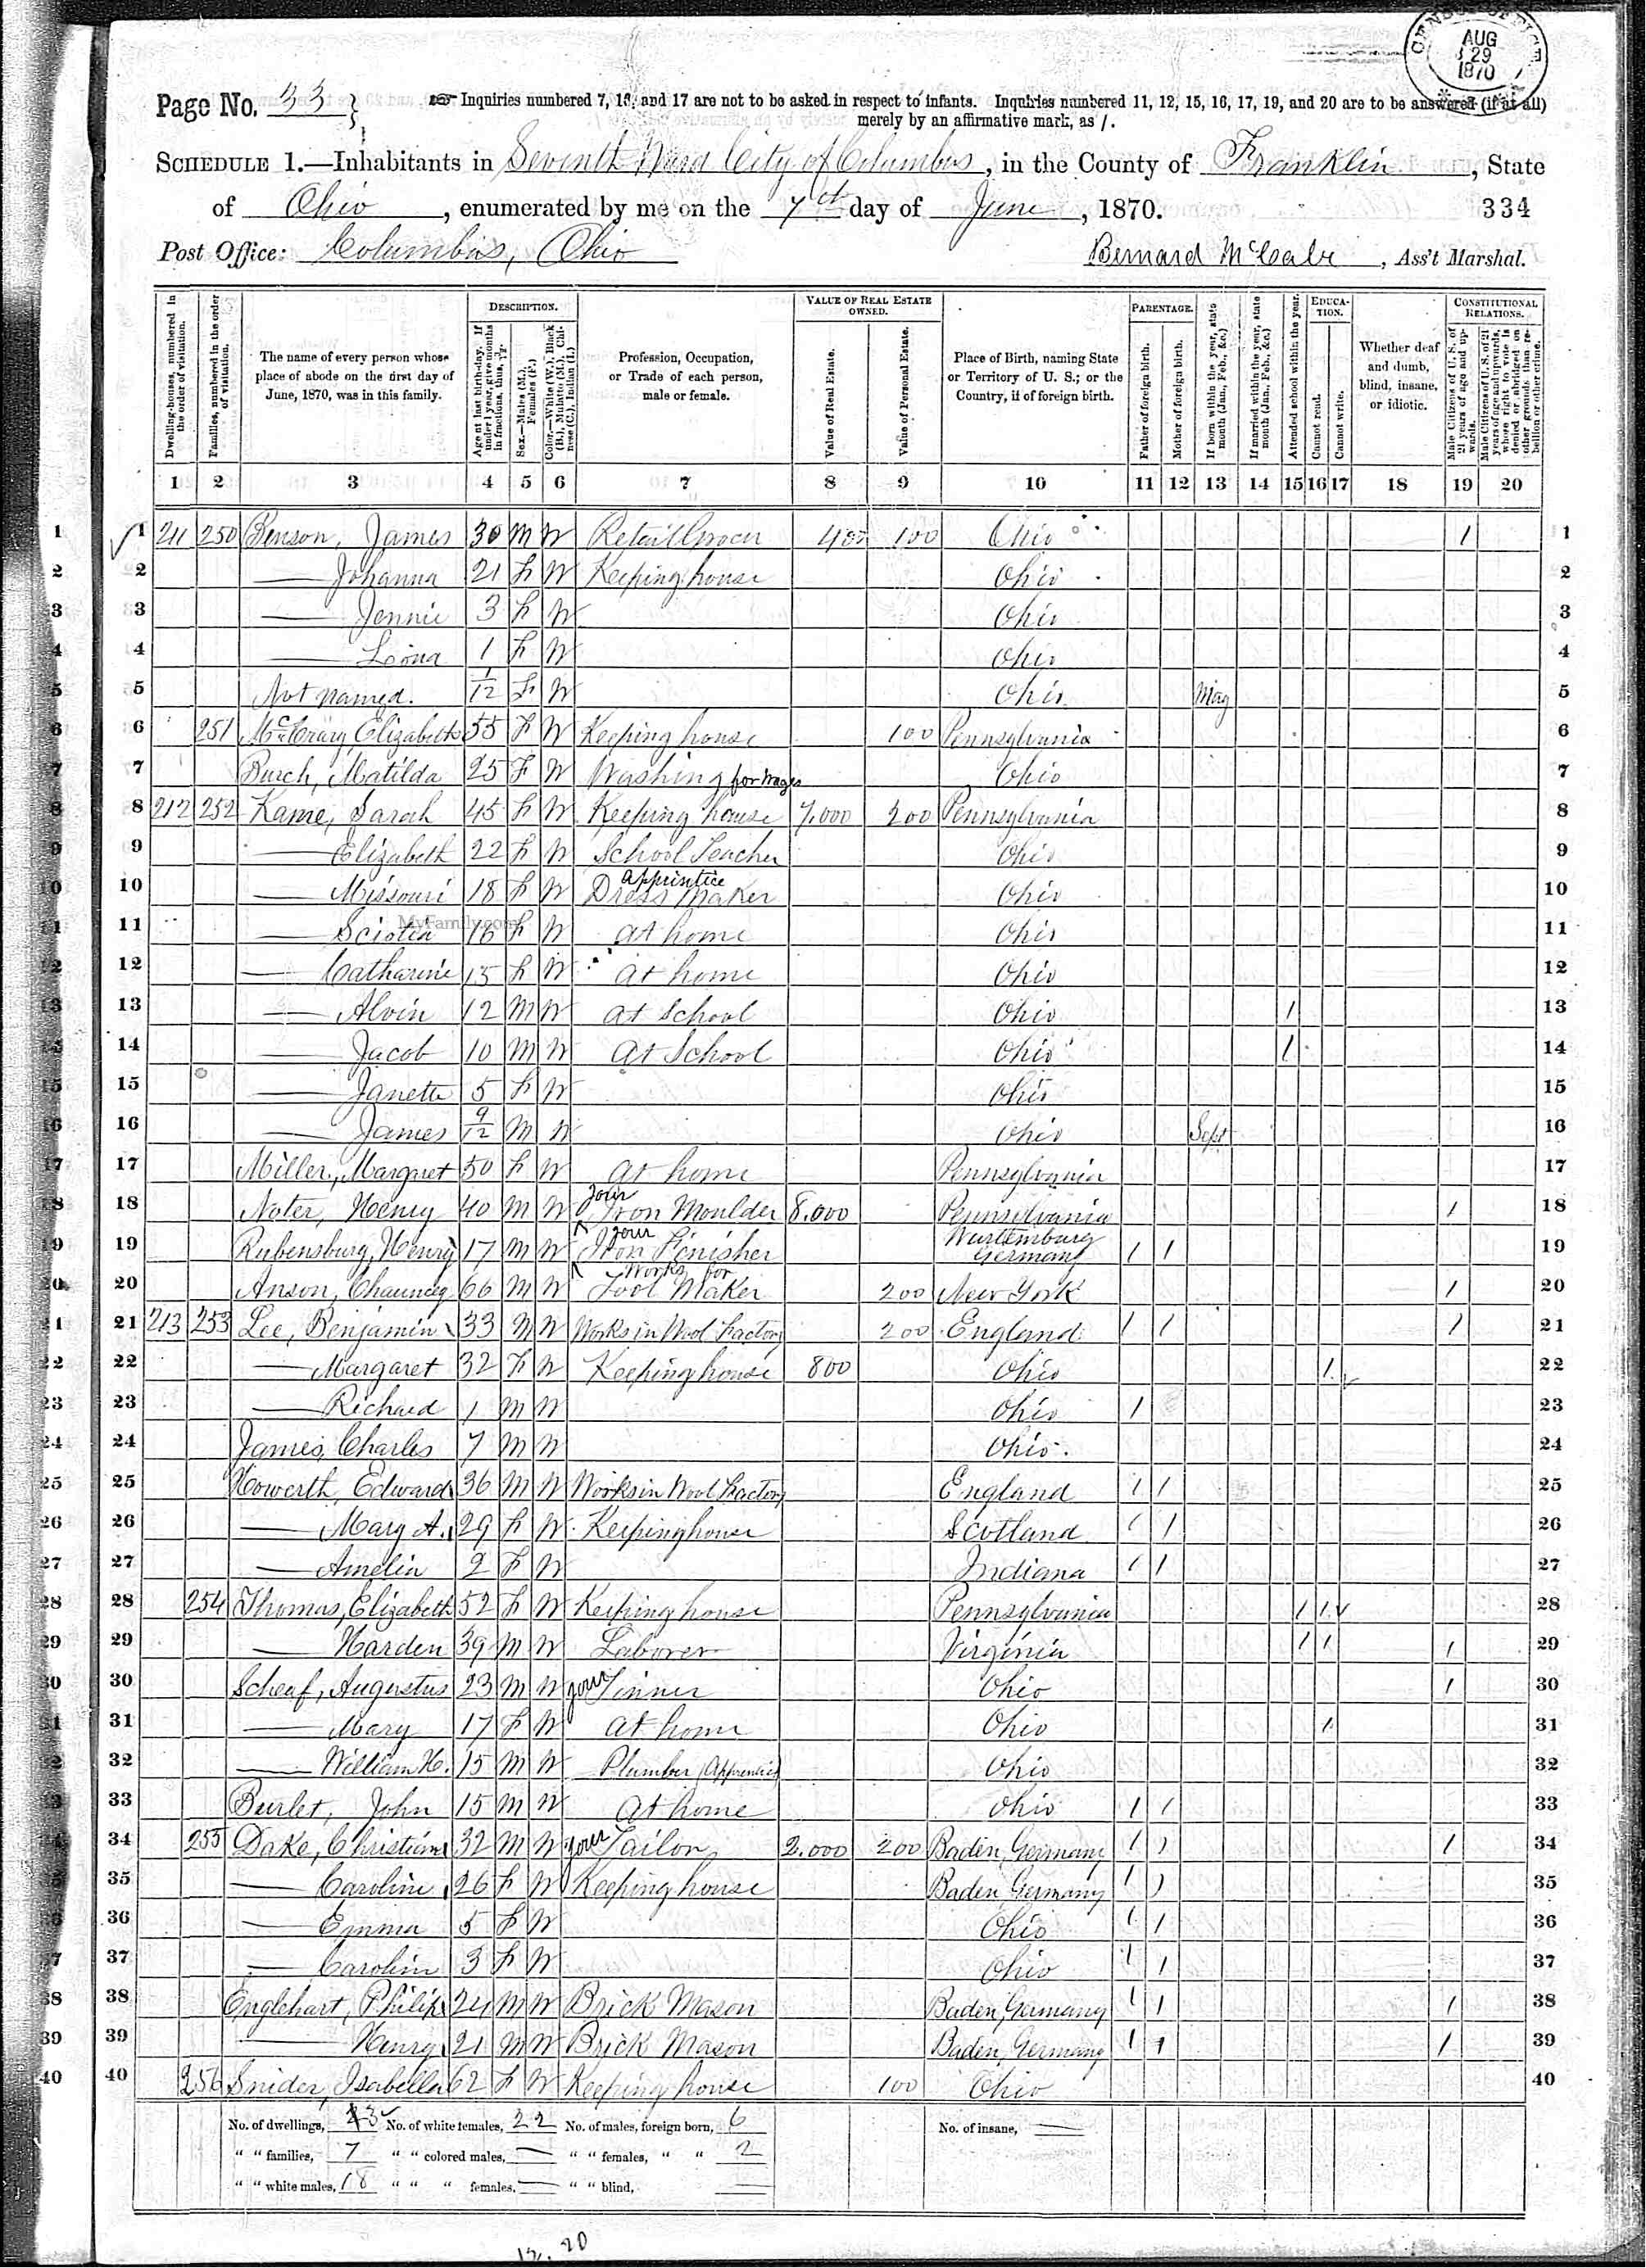 CENSUS OFFICE
AUG
29
1870
Page No. 33
Inquiries numbered 7, 16, and 17 are not to be asked in respect to infants. Inquiries numbered 11, 12, 15, 16, 17, 19, and 20 are to be answered (if at all)
merely by an affirmative mark, as /.
SCHEDULE 1.—Inhabitants in Seventh Ward City of Columbus, in the County of Franklin, State
of Ohio, enumerated by me on the 7th day of June, 1870. 334
Post Office: Columbus, Ohio Bernard McCabe, Ass't Marshal.
Dwelling-houses, numbered in the order of visitation.
Families, numbered in the order of visitation.
The name of every person whose place of abode on the first day of June, 1870, was in this family.
DESCRIPTION.
Age at last birth-day. If under 1 year, give months in fractions, thus, 3/12
Sex.—Males (M.), Females (F.)
Color.—White (W.), Black (B.), Mulatto (M.), Chinese (C.), Indian (I.)
Profession, Occupation, or Trade of each person, male or female.
VALUE OF REAL ESTATE OWNED.
Value of Real Estate.
Value of Personal Estate.
Place of Birth, naming State or Territory of U. S.; or the Country, if of foreign birth.
PARENTAGE.
Father of foreign birth.
Mother of foreign birth.
If born within the year, state month (Jan, Feb., &c.)
If married within the year, state month (Jan, Feb., &c.)
Attended school within the year.
EDUCATION.
Cannot read.
Cannot write.
Whether deaf and dumb, blind, insane, or idiotic.
CONSTITUTIONAL RELATIONS.
Male Citizens of U. S. of 21 years of age and upwards.
Male Citizens of U. S. of 21 years of age and upwards, whose right to vote is denied or abridged on other grounds than rebellion or other crime.
1 2 3 4 5 6 7 8 9 10 11 12 13 14 15 16 17 18 19 20
1 1 211 250 Benson, James 30 M W Retail Grocer 400 100 Ohio / 1
2 2 — Johanna 21 F W Keeping house Ohio 2
3 3 — Jennie 3 F W Ohio 3
4 4 — 1 F W Ohio 4
5 5 Not named. 1/12 F W Ohio May 5
6 6 251 McCrary, Elizabeth 55 F W Keeping house 100 Pennsylvania 6
7 7 Burch, Matilda 25 F W Washing for wages Ohio 7
8 8 212 252 Kame, Sarah 45 F W Keeping house 7,000 200 Pennsylvania 8
9 9 — Elizabeth 22 F W School Teacher Ohio 9
10 10 — Missouri 18 F W Apprentice Dress Maker Ohio 10
MyFamily.com
11 11 — Sciotia 16 F W at home Ohio 11
12 12 — Catharine 15 F W at home Ohio 12
13 13 — Alvin 12 M W at School Ohio / 13
14 14 — Jacob 10 M W at School Ohio / 14
15 15 — Janette 5 F W Ohio 15
16 16 — James 9/12 M W Ohio Sept 16
17 17 Miller, Margaret 50 F W at home Pennsylvania 17
18 18 Noter, Henry 40 M W Jour Iron Moulder 8,000 Pennsylvania / 18
19 19 Rubensburg, Henry 17 M W Jour Iron Finisher Wurtemburg Germany / / 19
20 20 Anson, Chauncey 66 M W Works for Tool Maker 200 New York / 20
21 21 213 253 Lee, Benjamin 33 M W Works in Wool Factory 200 England / / / 21
22 22 — Margaret 32 F W Keeping house 800 Ohio / 22
23 23 — Richard 1 M W Ohio / 23
24 24 James, Charles 7 M W Ohio 24
25 25 Howerth, Edward 36 M W Works in Wool Factory England / / 25
26 26 — Mary A. 29 F W Keeping house Scotland / / 26
27 27 — Amelia 2 F W Indiana / / 27
28 28 254 Thomas, Elizabeth 52 F W Keeping house Pennsylvania / / 28
29 29 — Harden 39 M W Laborer Virginia / / / 29
30 30 Scheaf, Augustus 23 M W Jour Tinner Ohio / 30
31 31 — Mary 17 F W at home Ohio / 31
32 32 — William H. 15 M W Plumber (Apprentice) Ohio 32
33 33 Burlet, John 15 M W at home Ohio / / 33
34 34 255 Dake, Christian 32 M W Jour Tailor 2,000 200 Baden, Germany / / / 34
35 35 — Caroline 26 F W Keeping house Baden, Germany / / 35
36 36 — Emma 5 F W Ohio / / 36
37 37 — Carolin 3 F W Ohio / / 37
38 38 Englehart, Philip 24 M W Brick Mason Baden, Germany / / / 38
39 39 — Henry 21 M W Brick Mason Baden, Germany / / / 39
40 40 256 Snider, Isabella 62 F W Keeping house 100 Ohio 40
No. of dwellings, 3 No. of white females, 22 No. of males, foreign born, 6 No. of insane, —
" " families, 7 " " colored males, — " " females, " " 2
" " white males, 18 " " " females, — " " blind, —